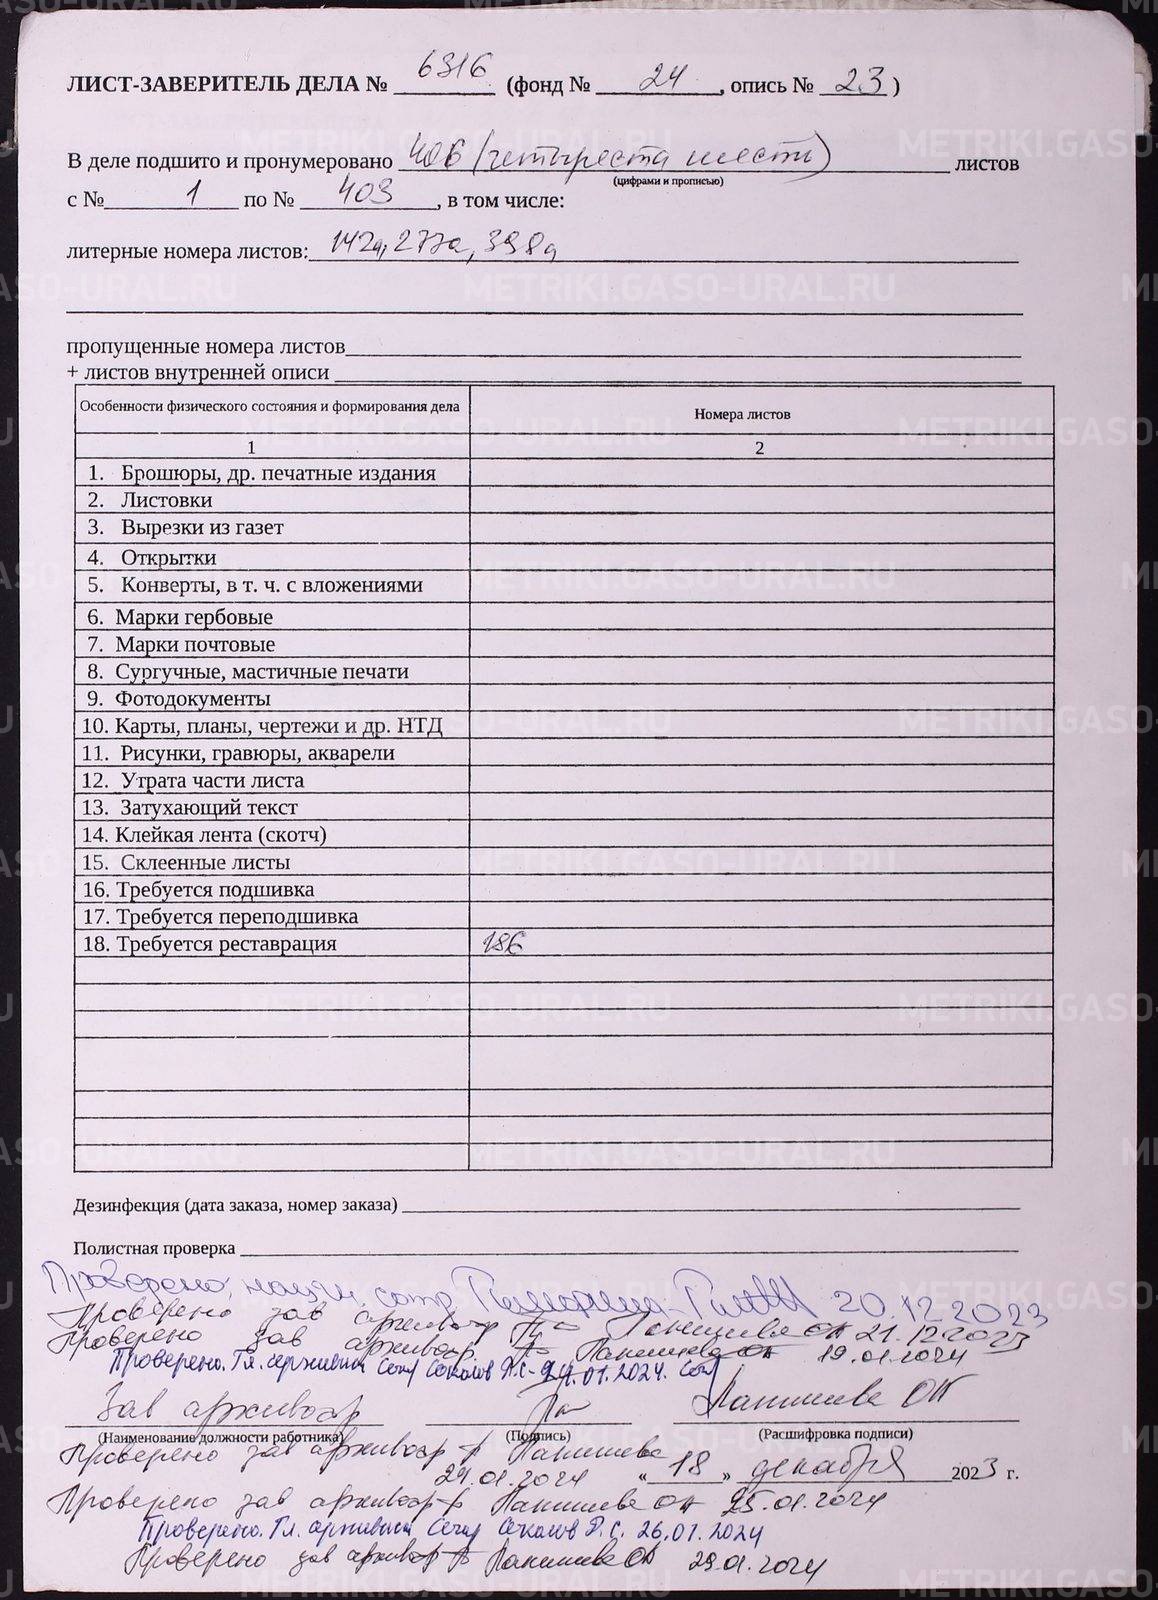 ЛИСТ-ЗАВЕРИТЕЛЬ ДЕЛА № 6316 (фонд № 24, опись № 23)
В деле подшито и пронумеровано 406 (четыреста шесть) листов
(цифрами и прописью)
с № 1 по № 403, в том числе:
литерные номера листов: 142а, 277а, 398а
пропущенные номера листов
+ листов внутренней описи
Особенности физического состояния и формирования дела Номера листов
1 2
1. Брошюры, др. печатные издания
2. Листовки
3. Вырезки из газет
4. Открытки
5. Конверты, в т. ч. с вложениями
6. Марки гербовые
7. Марки почтовые
8. Сургучные, мастичные печати
9. Фотодокументы
10. Карты, планы, чертежи и др. НТД
11. Рисунки, гравюры, акварели
12. Утрата части листа
13. Затухающий текст
14. Клейкая лента (скотч)
15. Склеенные листы
16. Требуется подшивка
17. Требуется переподшивка
18. Требуется реставрация 186
Дезинфекция (дата заказа, номер заказа)
Полистная проверка
Проверено, 20.12.2023
Проверено зав архивохр 21.12.2023
Проверено зав архивохр 19.01.2024
Проверено. Гл. архивист Соколов 24.01.2024.
Зав архивохр
(Наименование должности работника) (Подпись) (Расшифровка подписи)
Проверено зав архивохр
24.01.2024 « 18 » декабря 2023 г.
Проверено зав архивохр 25.01.2024
Проверено. Гл. архивист Соколов 26.01.2024
Проверено зав архивохр 29.01.2024
METRIKI.GASO-URAL.RU